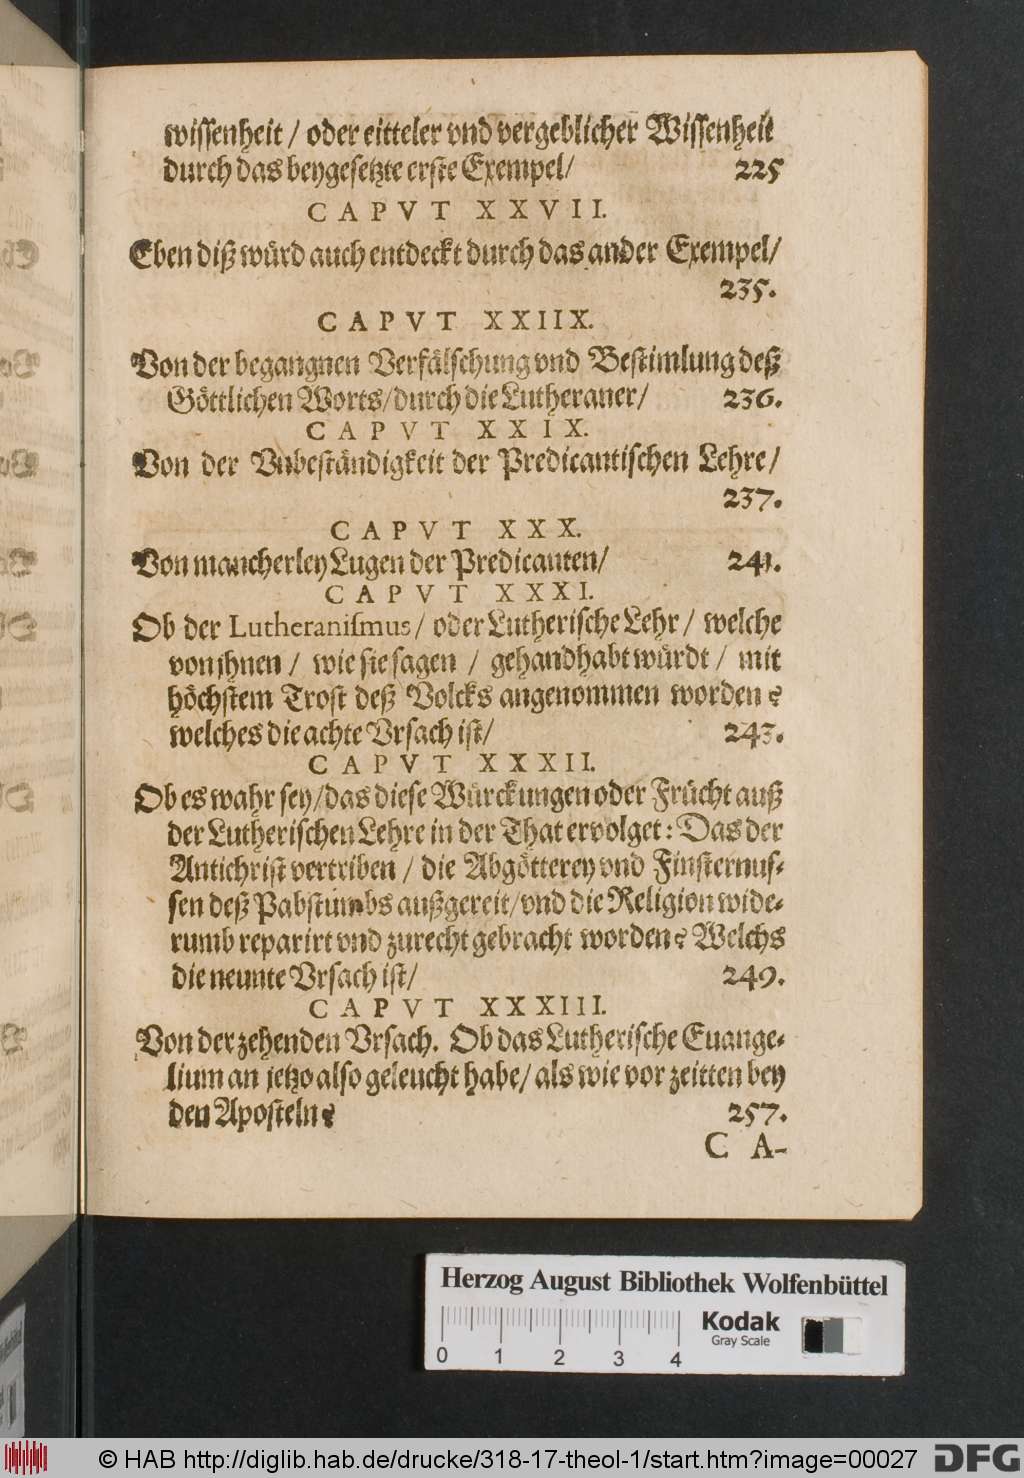 wissenheit / oder eitteler vnd vergeblicher Wissenheit
durch das beygesetzte erste Exempel/ 225
CAPVT XXVII.
Eben diß würd auch entdeckt durch das ander Exempel/
235.
CAPVT XXIIX.
Von der begangnen Verfälschung vnd Bestimlung deß
Göttlichen Worts/durch die Lutheraner/ 236.
CAPVT XXIX.
Von der Vnbeständigkeit der Predicantischen Lehre/
237.
CAPVT XXX.
Von mancherley Lugen der Predicanten/ 241.
CAPVT XXXI.
Ob der Lutheraniſmus/ oder Lutherische Lehr/ welche
von jhnen / wie sie sagen / gehandhabt würdt/ mit
höchstem Trost deß Volcks angenommen worden?
welches die achte Vrsach ist/ 243.
CAPVT XXXII.
Ob es wahr sey/das diese Würckungen oder Frücht auß
der Lutherischen Lehre in der That ervolget: Das der
Antichrist vertriben / die Abgötterey vnd Finsternus-
sen deß Pabstumbs außgereit/vnd die Religion wide-
rumb reparirt vnd zurecht gebracht worden? Welchs
die neunte Vrsach ist/ 249.
CAPVT XXXIII.
Von der zehenden Vrsach. Ob das Lutherische Euange-
lium an jetzo also geleucht habe/ als wie vor zeitten bey
den Aposteln? 257.
C A-
Herzog August Bibliothek Wolfenbüttel
Kodak
Gray Scale
0 1 2 3 4
© HAB http://diglib.hab.de/drucke/318-17-theol-1/start.htm?image=00027
DFG